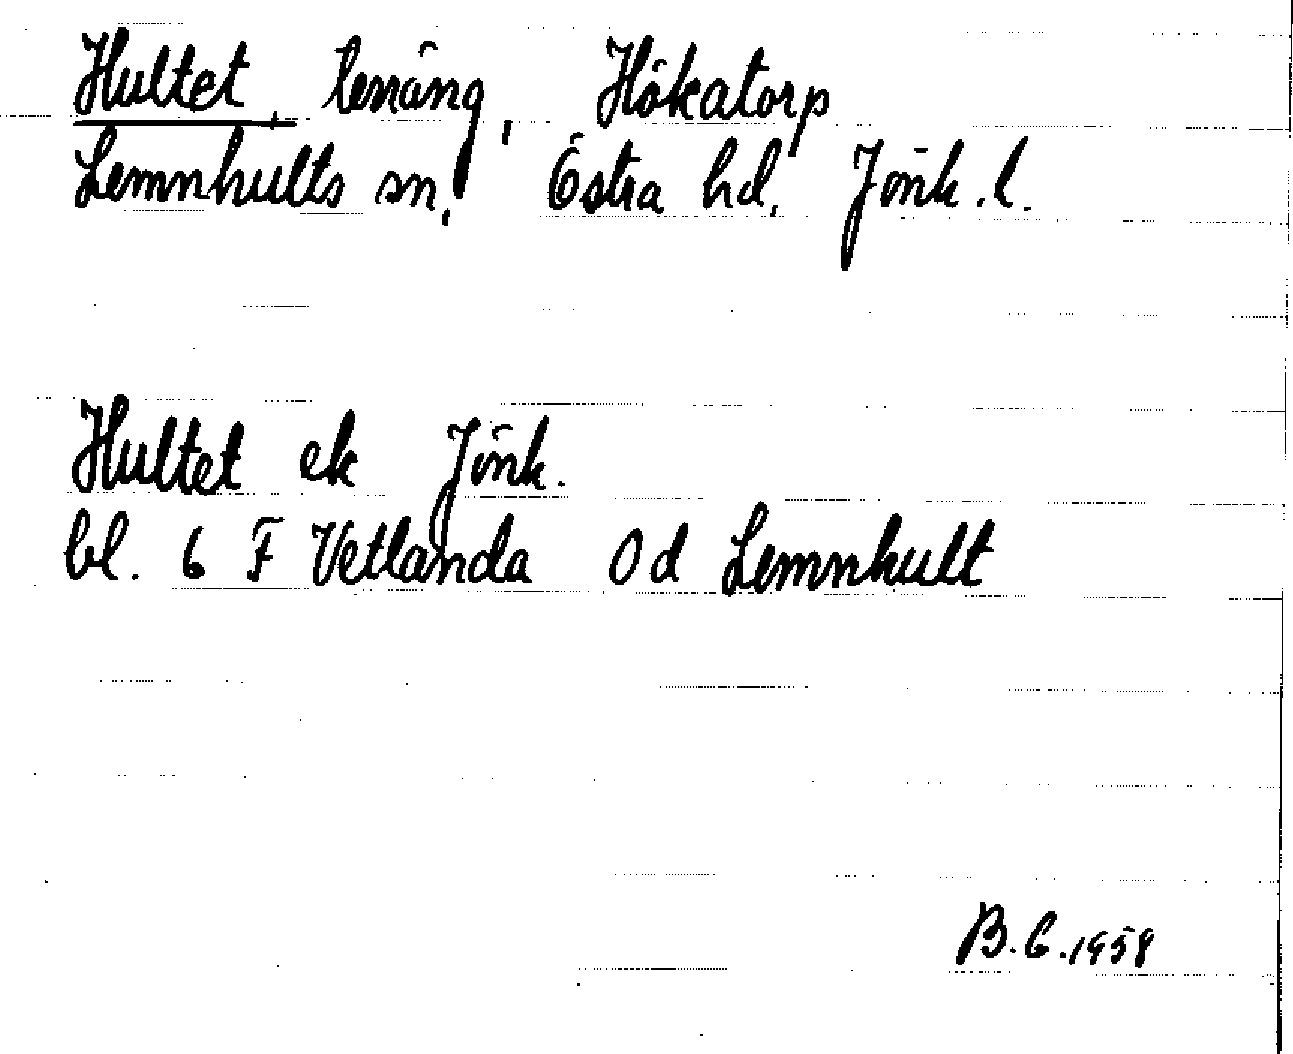 Hultet, lenäng, Hökatorp
Lemnhults sn, Östra hd, Jönk.l.
Hultet ek Jönk.
bl. 6 F Vetlanda 0 d Lemnhult
B.C.1958